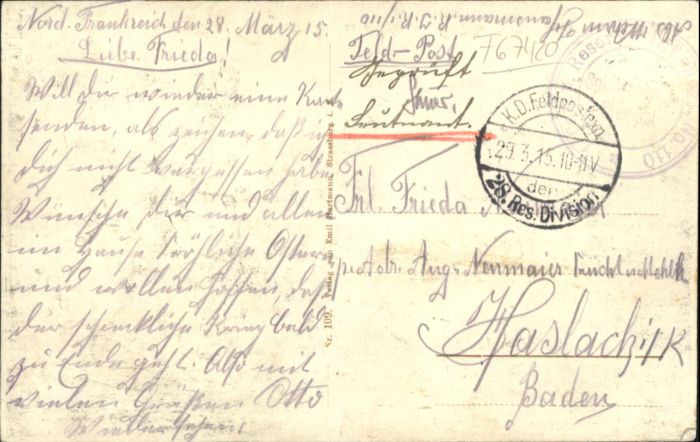 Nord. Frankreich den 28. März 15.
Liebe Frieda!
Will dir wieder eine Karte
senden, als zeichen, daß ich
dich nicht vergessen habe
Wünsche dir und allen
im Hause fröhliche Ostern
und wollen hoffen daß
der schreckliche Krieg bald
zu Ende geht. Also mit
vielen Grüßen Otto
Wiedersehen!
Nr. 109. Verlag von Emil Hartmann, Strassburg i.
Abs. Wehrm.
R. I. R. 110
Feld-Post
F67420
Geprüft
Leutnant.
K.D. Feldpostexp.
29.3.15.10-11V
der
28. Res. Division
No. 110
Frl. Frieda
p. Adr. Aug. Neumaier
Haslach i/K
Baden